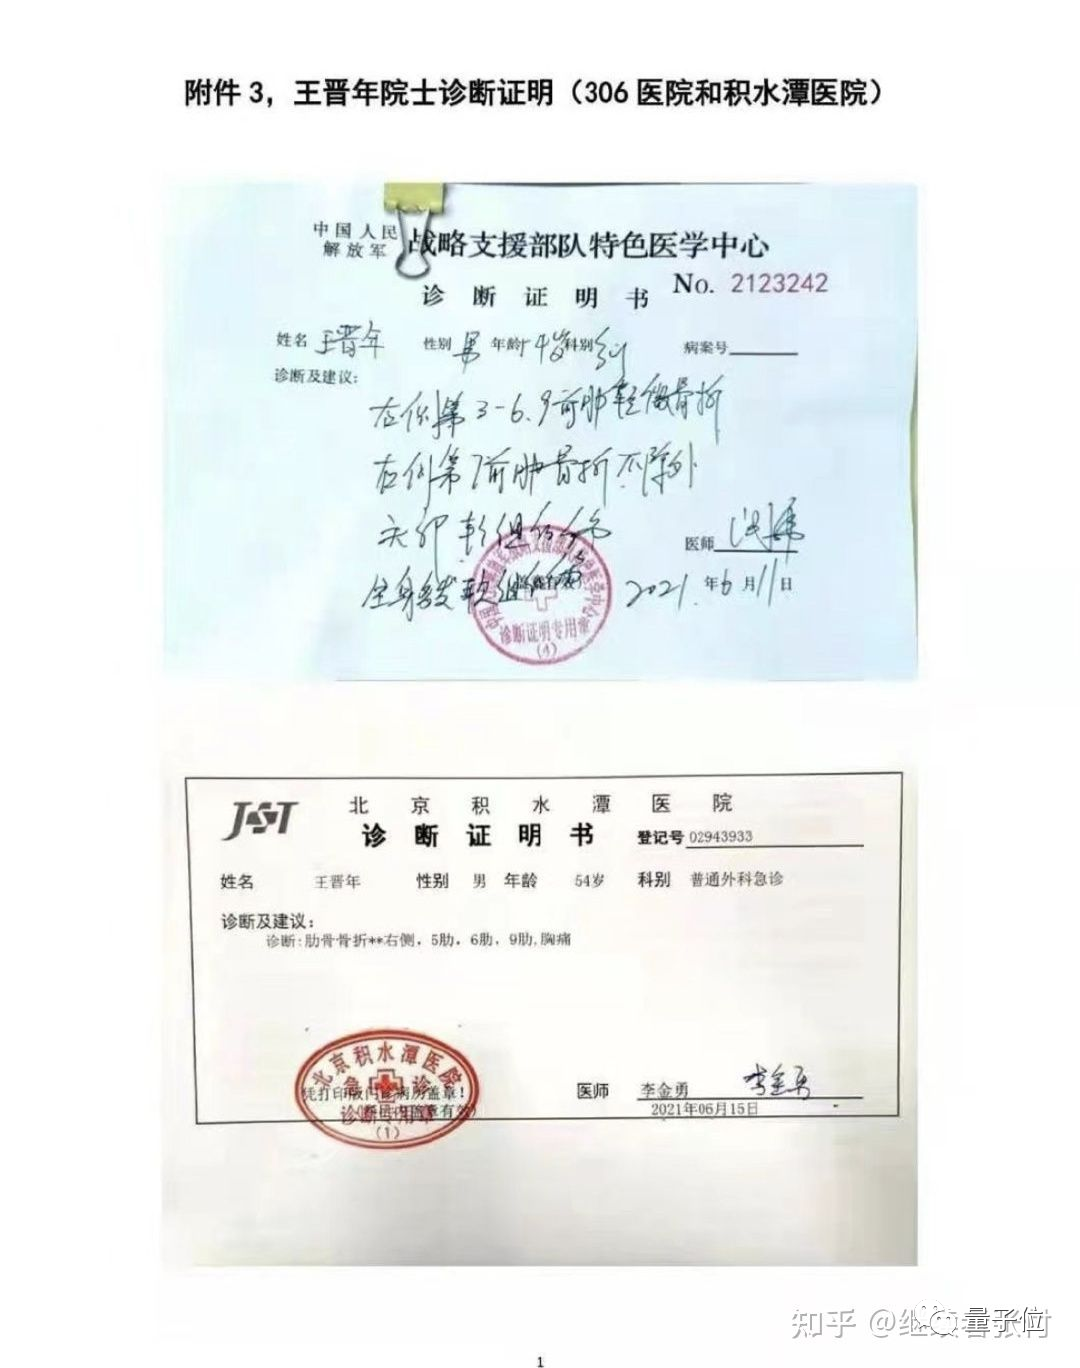 附件 3，王晋年院士诊断证明（306 医院和积水潭医院）
中国人民解放军 战略支援部队特色医学中心
诊 断 证 明 书 No. 2123242
姓名 王晋年 性别 男 年龄 科别 病案号
诊断及建议：
右侧第3-6.9前肋轻微骨折
右侧第7前肋骨折不除外
全身多发软组织
医师
2021.年6月11日
诊断证明专用章
(4)
JST 北 京 积 水 潭 医 院
诊 断 证 明 书 登记号 02943933
姓名 王晋年 性别 男 年龄 54岁 科别 普通外科急诊
诊断及建议：
诊断:肋骨骨折**右侧，5肋，6肋，9肋,胸痛
北京积水潭医院
急 诊
诊断专用章
(1)
医师 李金勇 李金勇
2021年06月15日
量子位
知乎
1